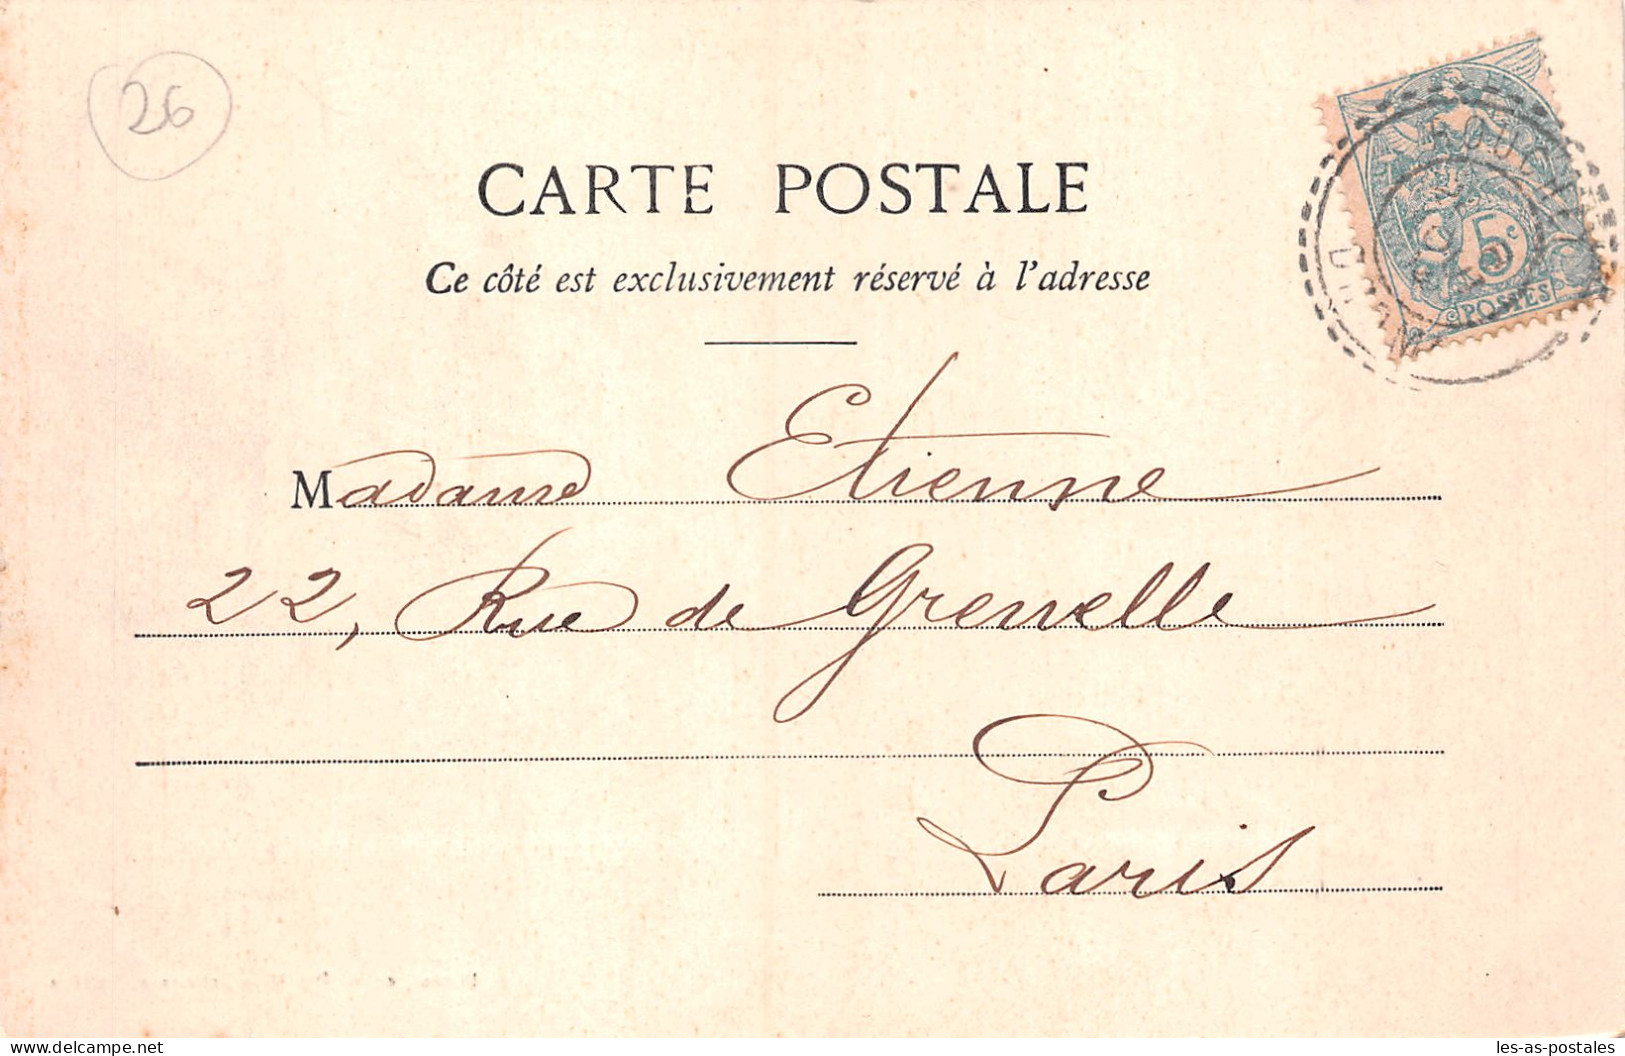 26
CARTE POSTALE
Ce côté est exclusivement réservé à l'adresse
5c
POSTES
Madame Etienne
22, Rue de Grenelle
Paris
Delcampe.net
les-as-postales